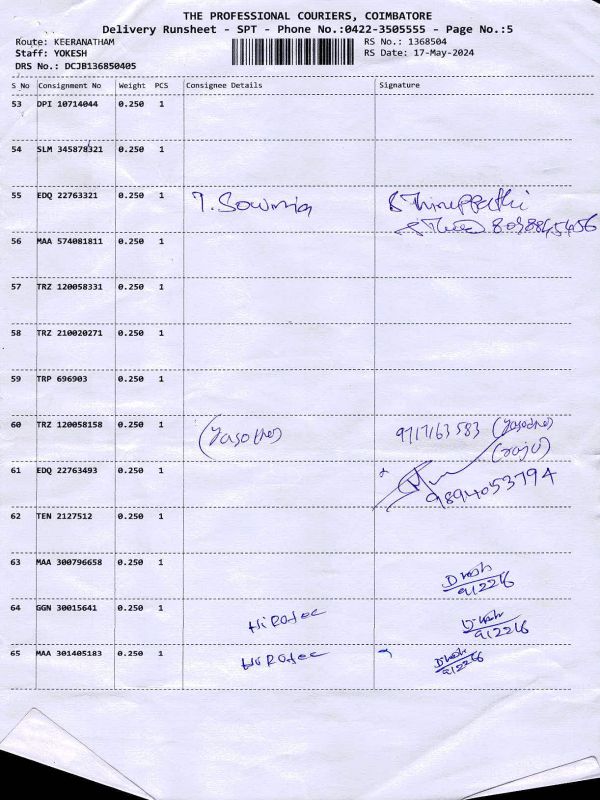 THE PROFESSIONAL COURIERS, COIMBATORE
Delivery Runsheet - SPT - Phone No.:0422-3505555 - Page No.:5
Route: KEERANATHAM RS No.: 1368504
Staff: YOKESH RS Date: 17-May-2024
DRS No.: DCJB136850405
S No Consignment No Weight PCS Consignee Details Signature
53 DPI 10714044 0.250 1
54 SLM 345878321 0.250 1
55 EDQ 22763321 0.250 1 T. Sowmia
56 MAA 574081811 0.250 1
57 TRZ 120058331 0.250 1
58 TRZ 210020271 0.250 1
59 TRP 696903 0.250 1
60 TRZ 120058158 0.250 1 9717163583
61 EDQ 22763493 0.250 1 9894053794
62 TEN 2127512 0.250 1
63 MAA 300796658 0.250 1
64 GGN 30015641 0.250 1
65 MAA 301405183 0.250 1